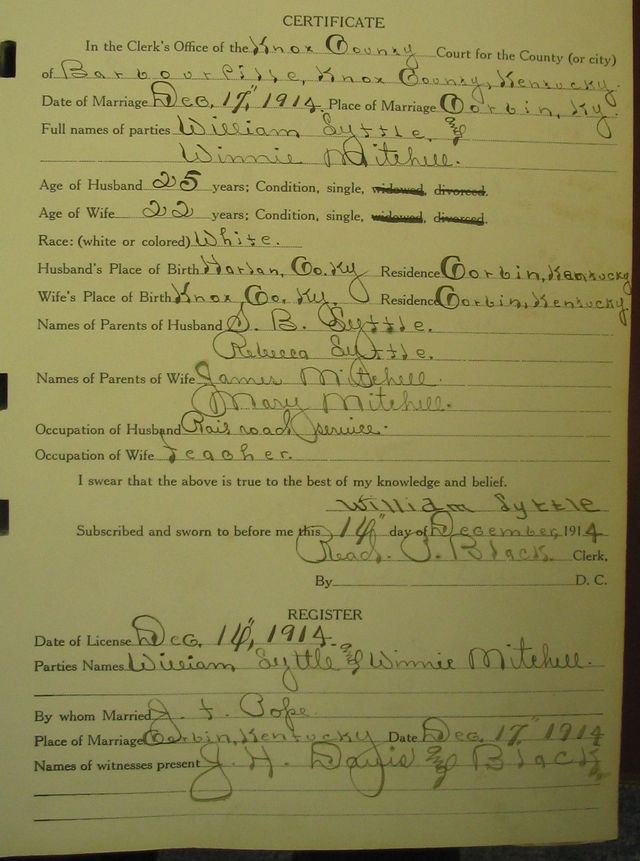 CERTIFICATE
In the Clerk's Office of the Knox County Court for the County (or city)
of Barbourville, Knox County, Kentucky.
Date of Marriage Dec, 17", 1914. Place of Marriage Corbin, Ky.
Full names of parties William Syttle, &
Winnie Mitchell.
Age of Husband 25 years; Condition, single, widowed, divorced.
Age of Wife 22 years; Condition, single, widowed, divorced.
Race: (white or colored) White.
Husband's Place of Birth Harlan, Co. Ky Residence Corbin, Kentucky
Wife's Place of Birth Knox, Co. Ky. Residence Corbin, Kentucky.
Names of Parents of Husband S. B. Syttle.
Rebecca Syttle.
Names of Parents of Wife James Mitchell.
Mary Mitchell.
Occupation of Husband Rail road service.
Occupation of Wife Teacher.
I swear that the above is true to the best of my knowledge and belief.
William Syttle
Subscribed and sworn to before me this 14" day of December, 1914
Read. P. Black Clerk,
By D. C.
REGISTER
Date of License Dec, 14", 1914.
Parties Names William Syttle & Winnie Mitchell.
By whom Married J. T. Pope.
Place of Marriage Corbin, Kentucky Date Dec. 17" 1914
Names of witnesses present J. H. Davis & Black